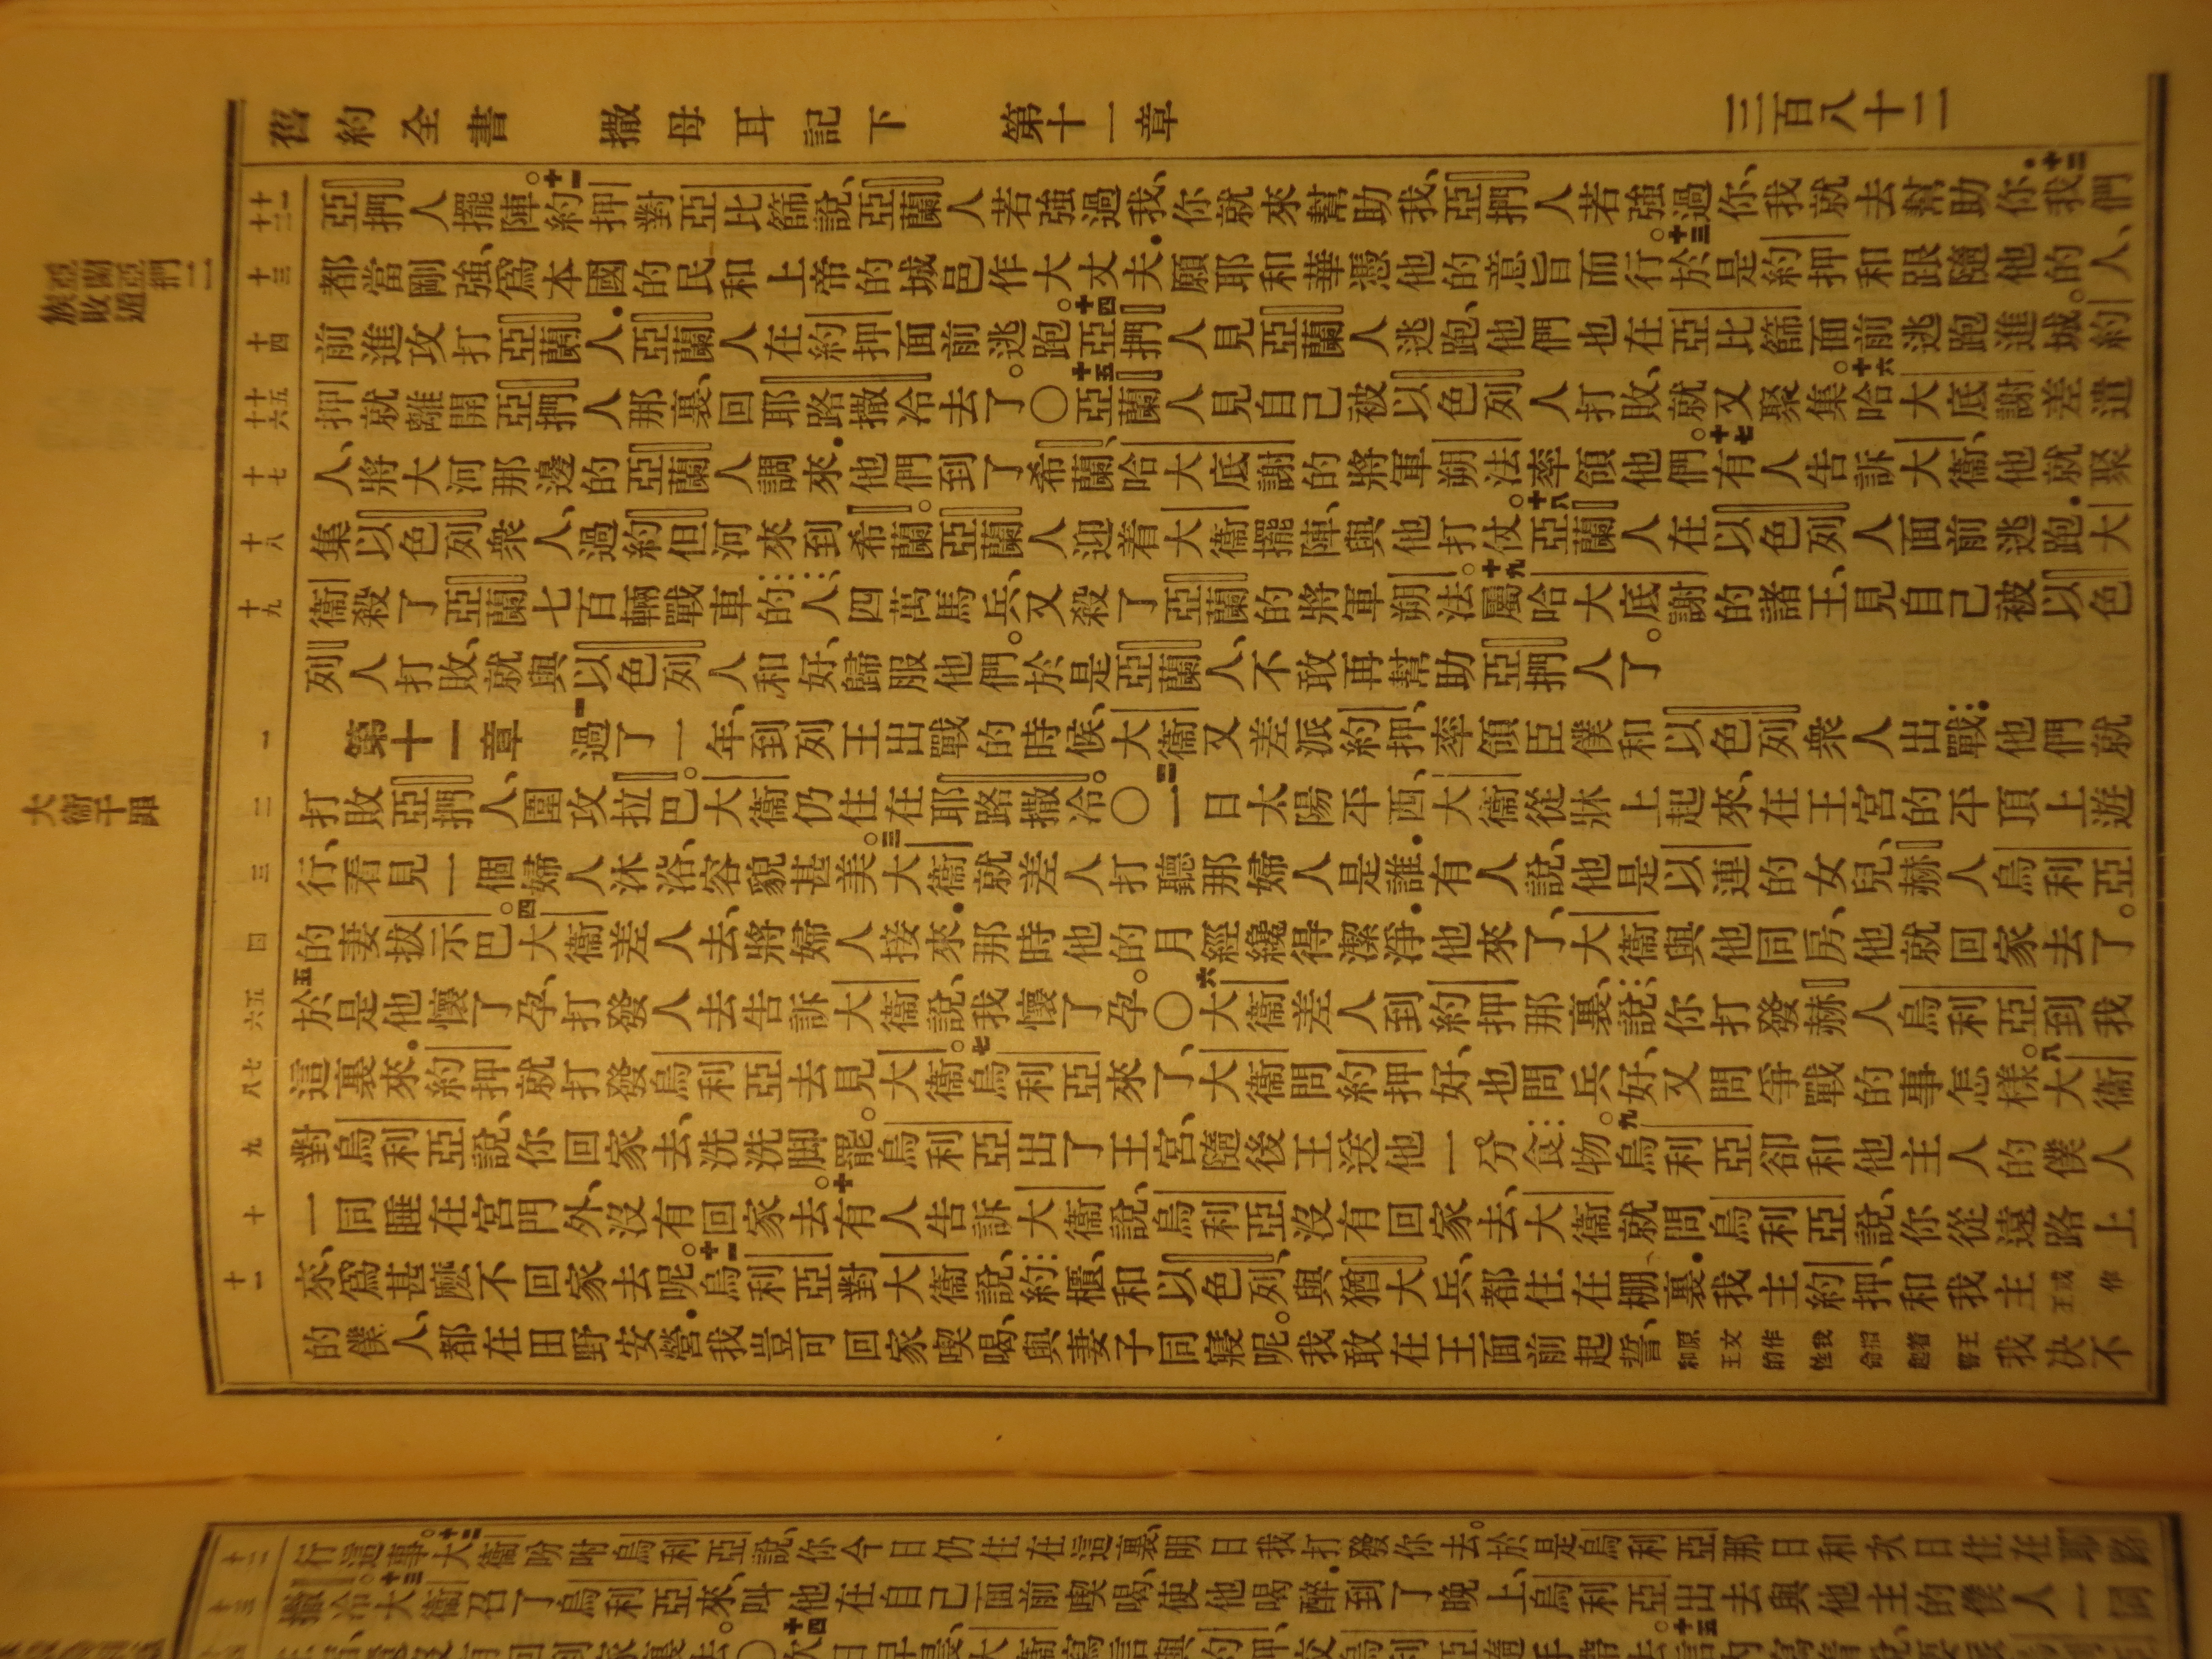 舊約全書 撒母耳記下 第十一章 三百八十二
十一 十二
亞捫人擺陣。十一約押對亞比篩說、亞蘭人若強過我、你就來幫助我、亞捫人若強過你、我就去幫助你.十二我們
十三
都當剛強、爲本國的民和上帝的城邑作大丈夫.願耶和華憑他的意旨而行。十三於是約押和跟隨他的人、
十四
前進攻打亞蘭人.亞蘭人在約押面前逃跑。十四亞捫人見亞蘭人逃跑、他們也在亞比篩面前逃跑進城。約
十五 十六
押就離開亞捫人那裏、回耶路撒冷去了。○十五亞蘭人見自己被以色列人打敗、就又聚集。十六哈大底謝差遣
十七
人、將大河那邊的亞蘭人調來.他們到了希蘭、哈大底謝的將軍朔法率領他們。十七有人告訴大衞、他就聚
十八
集以色列衆人、過約但河來到希蘭。亞蘭人迎着大衞擺陣、與他打仗。十八亞蘭人在以色列人面前逃跑.大
十九
衞殺了亞蘭七百輛戰車的人、四萬馬兵、又殺了亞蘭的將軍朔法。十九屬哈大底謝的諸王、見自己被以色
列人打敗、就與以色列人和好、歸服他們。於是亞蘭人、不敢再幫助亞捫人了。
一
第十一章 一過了一年、到列王出戰的時候、大衞又差派約押、率領臣僕和以色列衆人出戰.他們就
二
打敗亞捫人、圍攻拉巴。大衞仍住在耶路撒冷。○二一日太陽平西、大衞從牀上起來、在王宮的平頂上遊
三
行、看見一個婦人沐浴、容貌甚美。三大衞就差人打聽那婦人是誰.有人說、他是以連的女兒、赫人烏利亞
四
的妻拔示巴。四大衞差人去、將婦人接來.那時他的月經纔得潔淨.他來了、大衞與他同房、他就回家去了。
五 六
五於是他懷了孕、打發人去告訴大衞說、我懷了孕。○六大衞差人到約押那裏、說、你打發赫人烏利亞到我
七 八
這裏來.約押就打發烏利亞去見大衞。七烏利亞來了、大衞問約押好、也問兵好、又問爭戰的事怎樣。八大衞
九
對烏利亞說、你回家去、洗洗脚罷。烏利亞出了王宮、隨後王送他一分食物。九烏利亞卻和他主人的僕人
十
一同睡在宮門外、沒有回家去。十有人告訴大衞說、烏利亞沒有回家去、大衞就問烏利亞說、你從遠路上
十一
來、爲甚麽不回家去呢。十一烏利亞對大衞說、約櫃、和以色列、與猶大兵、都住在棚裏.我主約押、和我主王或作
的僕人、都在田野安營.我豈可回家喫喝、與妻子同寢呢。我敢在王面前起誓、原文作我指着王和王的性命起誓我决不
亞蘭亞捫二族敗遁
大衞干罪
十二
行這事。十二大衞吩咐烏利亞說、你今日仍住在這裏、明日我打發你去。於是烏利亞那日和次日住在耶路
十三
撒冷。十三大衞召了烏利亞來、叫他在自己面前喫喝、使他喝醉.到了晚上、烏利亞出去與他主的僕人一同